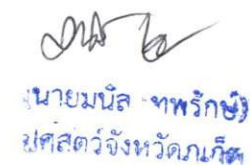 นายมนัส ทพรักษ์
ปศุสัตว์จังหวัดภูเก็ต